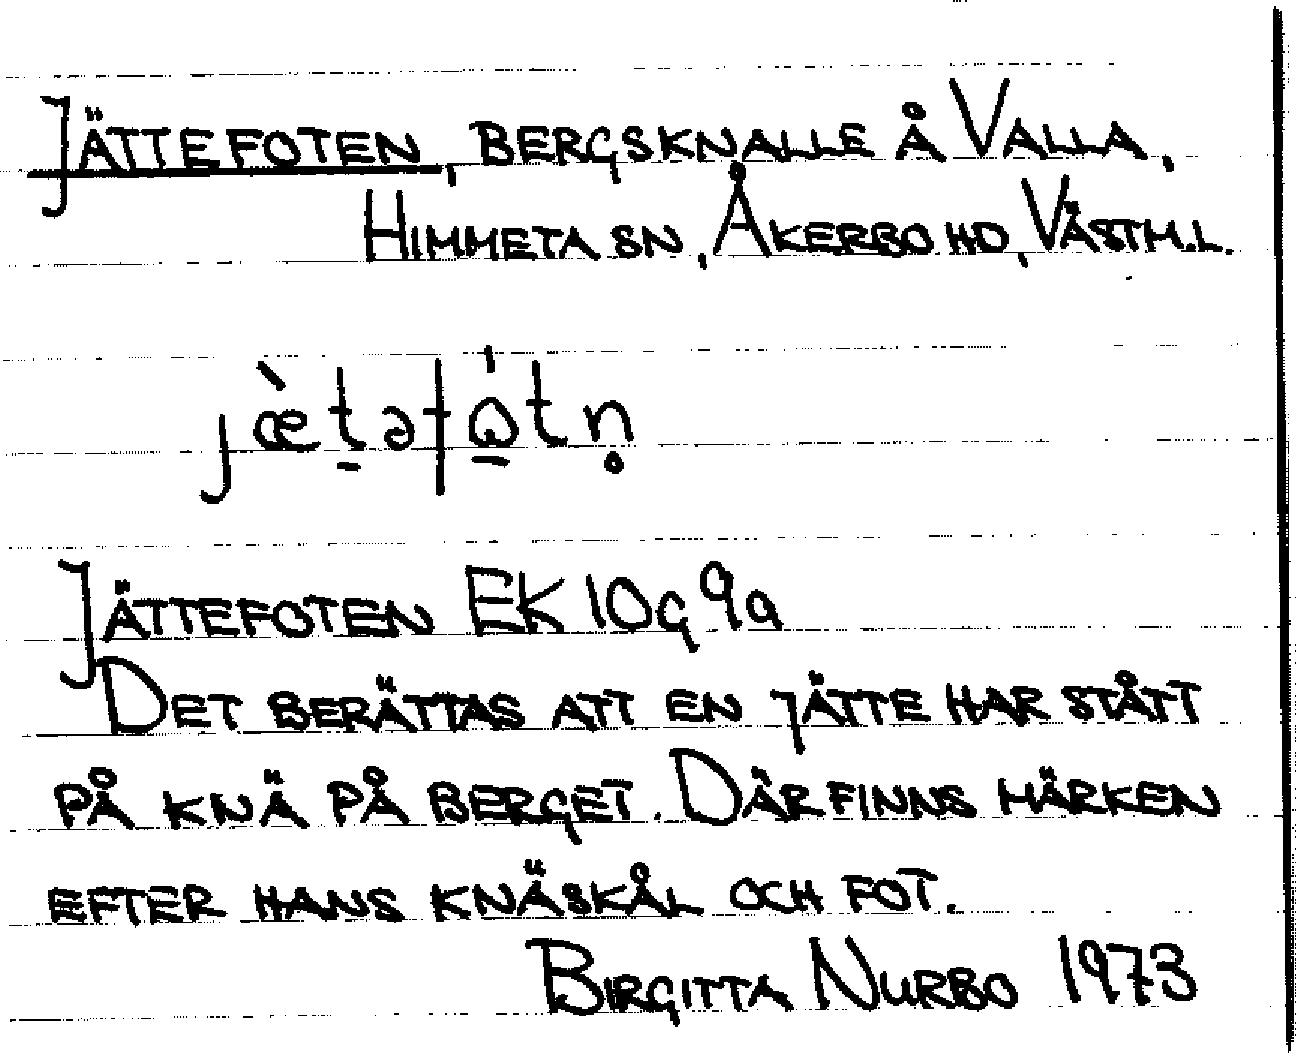 Jättefoten, bergsknalle å Valla,
Himmeta sn, Åkerbo hd, Västm.l.
jæ̀t̠əfω̠̇tn̥
Jättefoten EK 10G 9a
Det berättas att en jätte har stått
på knä på berget. Där finns märken
efter hans knäskål och fot.
Birgitta Nurbo 1973